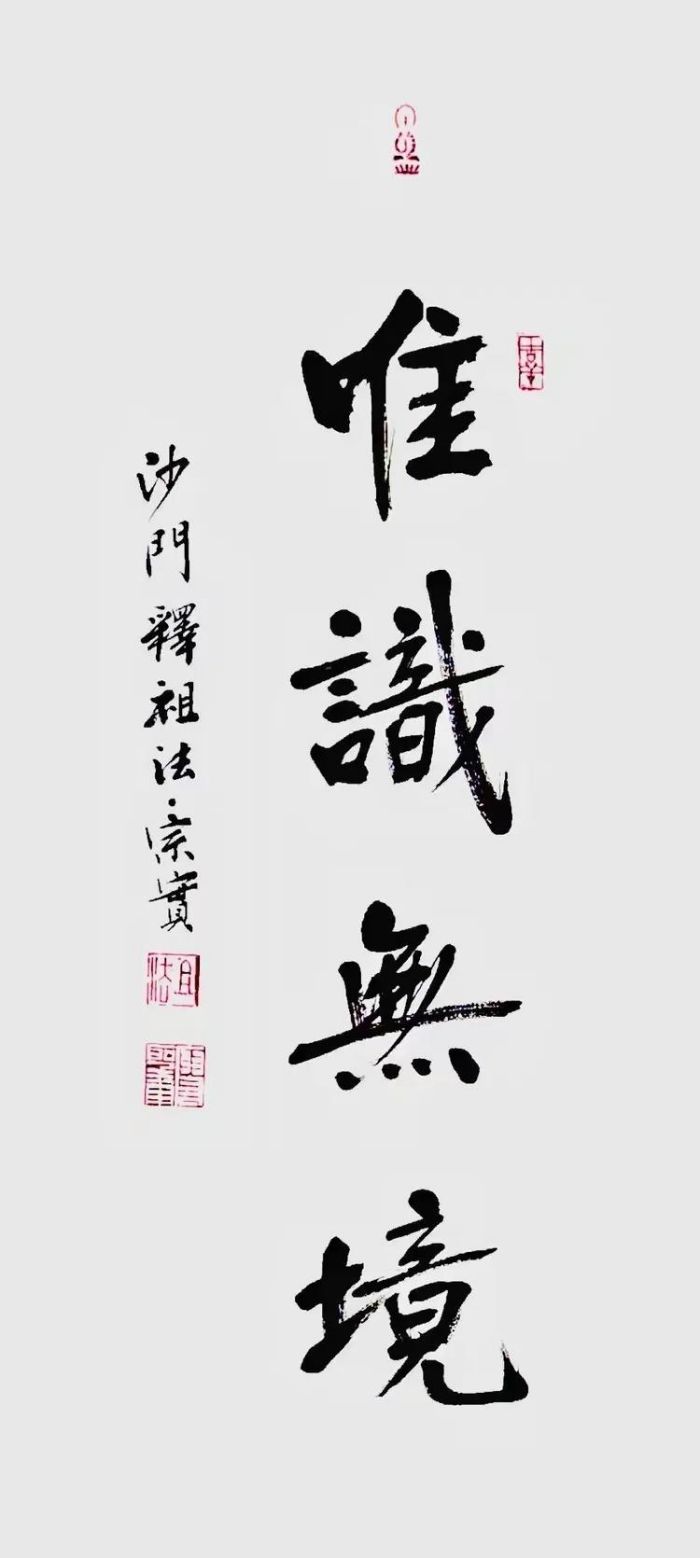 唯識無境
沙門釋祖法·宗實
祖法